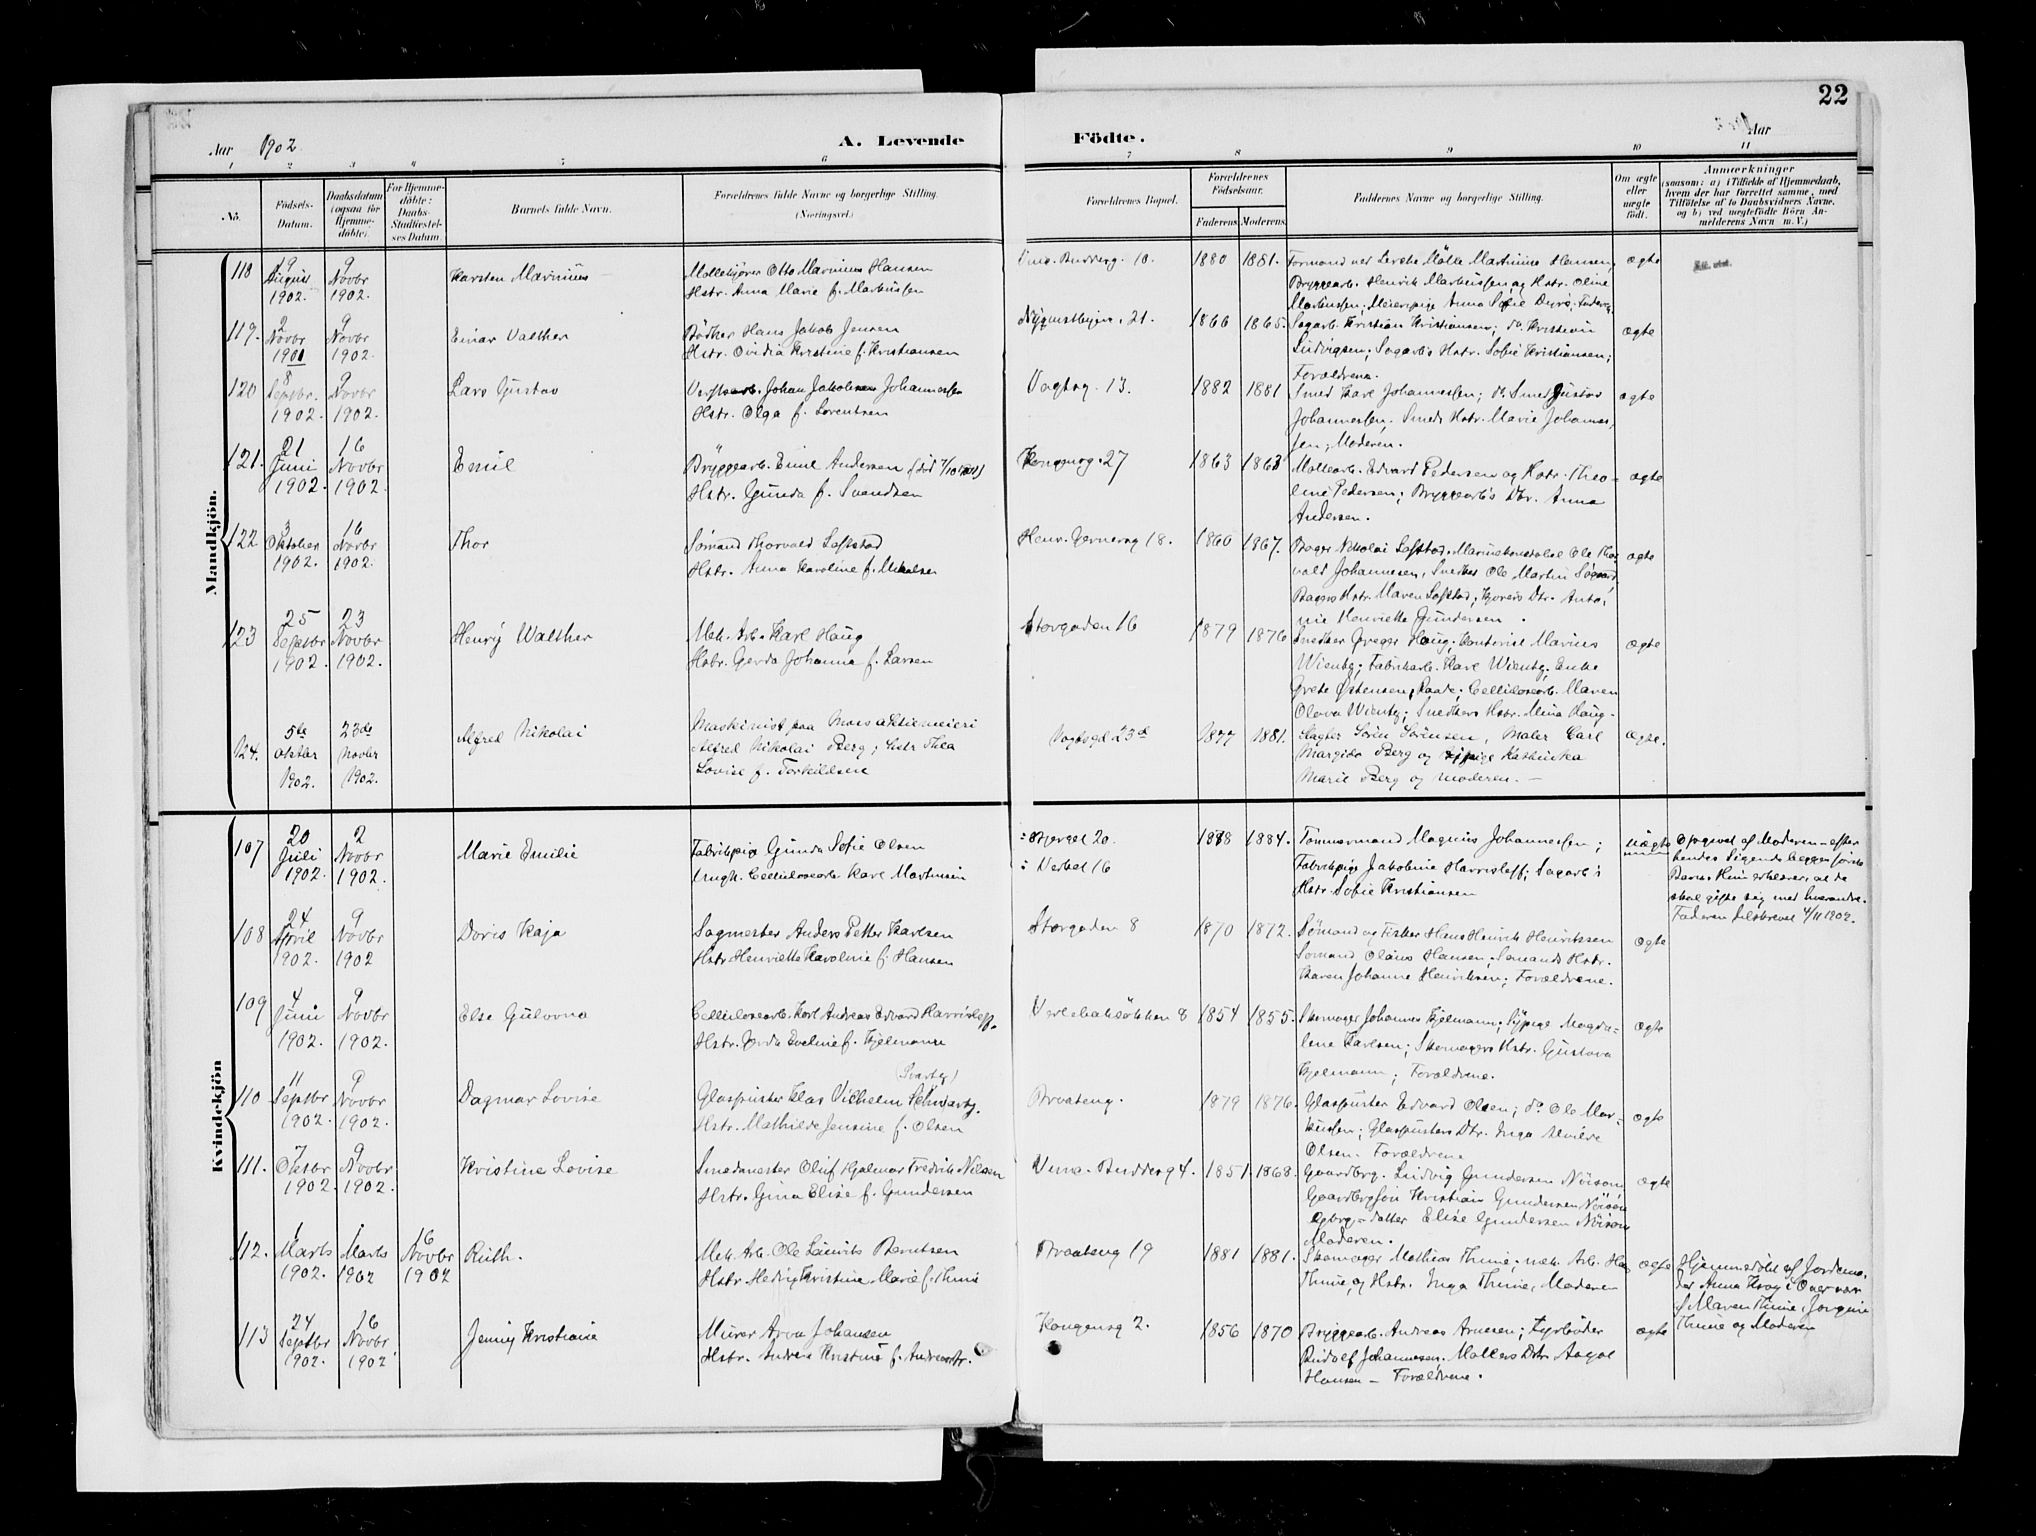 22
Aar 1902
A. Levende Födte.
Aar
1 2 3 4 5 6 7 8 9 10 11
No.
Födsels-Datum.
Daabsdatum (ogsaa for Hjemme-döbte).
For Hjemme-döbte: Daabs-Stadfæstel-ses Datum
Barnets fulde Navn.
Forældrenes fulde Navne og borgerlige Stilling. (Næringsvei.)
Forældrenes Bopæl.
Forældrenes Födselsaar.
Faderens. Moderens.
Faddernes Navne og borgerlige Stilling.
Om ægte eller uægte födt.
Anmærkninger
(saasom: a) i Tilfælde af Hjemmedaab, hvem der har forrettet samme, med Tilföielse af to Daabsvidners Navne, og b) ved uægtefödte Börn An-melderens Navn m.V.)
Mandkjön.
118 August 1902. 9 Novbr 1902. Karsten Marinius
Otto Marinius Hansen
Hstr. Anna Marie f. Markussen
10. 1880 1881. ægte
Formand ved Mölle Martinius Hansen,
Bryggearb. Henrik Markussen og Hstr. Oline
Markussen; Meierpige Anna Sofie
119. 2 Novbr 1901 9 Novbr 1902. Einar Valther
Bödker Hans Jakob Jensen
Hstr. Ovidia Kristine f. Kristiansen
21. 1866 1865. ægte
Sagarb. Kristian Kristiansen; do. Kristian
Ludvigsen; Sagarb's Hstr. Sofie Kristiansen;
Forældrene.
120 8 Septbr. 1902. 9 Novbr 1902. Lars Gustav
Johan Jakobsen Johannessen
Hstr. Olga f. Lorentsen
Vogtsg. 13. 1882 1881 ægte
Smed Karl Johannessen; do. Smed Gustav
Johannessen, Smeds Hstr. Marie Johannes,
sen; Moderen.
121. 21 Juni 1902. 16 Novbr 1902. Emil
Bryggearb. Emil Andersen
Hstr. Gunda f. Svendsen
Kongensg. 27 1863 1863 ægte
Möllearb. Edvard Pedersen og Hstr. Theo-
line Pedersen; Bryggearb's Dtr. Anna
Andersen.
122 3 Oktober 1902. 16 Novbr 1902. Thor
Sömand Thorvald Lofstad
Hstr. Anna Karoline f.
Henr. Gernersg 18. 1860 1867. ægte
Bager Nikolai Lofstad, Ole Thor
vald Johannesen, Snedker Ole Martin
Bagers Hstr. Maren Lofstad; Dtr. Anto,
nie Henriette Gundersen.
123 25 Septbr 1902. 23 Novbr 1902. Henry Walther
Mek. Arb. Karl Haug
Hstr. Gerda Johanna f. Larsen
Storgaden 16 1879 1876 ægte
Snedker Gregger Haug; Kontorist Marius
Wientg; Fabrikarb. Karl Wientg; Enke
Grete Östensen, Raade; Cellulosearb. Maren
Olava Wientg; Snedkers Hstr. Mina Haug.
124. 5te oktbr 1902. 23de Novbr 1902. Alfred Nikolai
Maskinist paa Moss aktiemeieri
Alfred Nikolai Berg; hstr Thea
Lovise f. Torkildsen
Vogtsgd 23d 1877 1881. ægte.
Slagter Sörin Sörinsen, Maler Carl
Margido Berg og sypige Kathinka
Marie Berg og moderen.
Kvindekjön
107 20 Juli 1902. 2 Novbr 1902. Marie Emilie
Fabrikpig Gunda Sofie Olsen
Ungk. Cellulosearb. Karl Martinsen
20.
: Verket 16
1878 1884. uægte
Tömmermand Magnus Johannessen;
Fabrikpige Jakobine Harrisleff; Sagarb's
Hstr. Sofie Kristiansen
Opgivet af Moderen – efter
hendes Sigende
Barns Hun erklærer, at de
skal gifte sig med hverandre.
Faderen tilskrevet 4/11 1902.
108 24 April 1902. 9 Novbr 1902 Doris Kaja
Sagmester Anders Petter Karlsen
Hstr. Henriette Karoline f. Hansen
Storgaden 8 1870 1872. ægte
Sömand og Fisker Hans Henrik Henriksen
Sömand Olaus Hansen, Sömands Hstr.
Karen Johanne Henriksen; Forældrene.
109 4 Juni 1902. 9 Novbr 1902. Else Gulovna
Cellulosearb. Karl Andreas Edvard Harrisleff.
Hstr. Eveline f. Hjelmann
8 1854 1855. ægte
Skomager Johannes Hjelmann; Sypige Magda-
lene Karlsen; Skomagers Hstr. Gustava
Hjelmann; Forældrene.
110 11 Septbr 1902. 9 Novbr 1902. Dagmar Lovise
(Svartz)
Glaspuster Klas Vilhelm Schwartz.
Hstr. Mathilde Jensine f. Olsen
Braateng. 1879 1876. ægte
Glaspuster Edvard Olsen; do. Ole Mar-
kussen; Glaspusters Dtr. Inga Elvire
Olsen. Forældrene
111. 7 Oktbr 1902. 9 Novbr 1902. Kristine Lovise
Smedmester Oluf Hjalmar Fredrik Nilssen
Hstr. Gina Elise f. Gundersen
4. 1851 1868. ægte
Gaardbrg. Ludvig Gundersen Nöisom,
Gaardbrgsön Kristian Gundersen Nöisom
Gbrg.-datter Elise Gundersen Nöisom
Moderen.
112. 1 Marts 1902. 1 Marts 1902 16 Novbr 1902 Ruth.
Mek. Arb. Ole Laurits Berntsen
Hstr. Hedvig Kristine Marie f. Thune
Braateng 19 1881 1881. ægte
Skomager Mathias Thune; mek. Arb. Hans
Thune, og Hstr. Inga Thune, Moderen
Hjemmedöbt af Jordemo,
der Anna Krog i Overvær
af Maren Thune, Jorgine
Thune og Moderen
113 24 Septbr 1902. 16 Novbr 1902 Jenny Kristiane
Murer Arvo Johansen
Hstr. Andrea Kristine f. Andreasdtr.
Kongensg 2. 1856 1870 ægte
Bryggearb. Andreas Arnesen; Fyrböder
Rudolf Johannesen, Möllers Dtr. Aagot
Hansen – Forældrene.